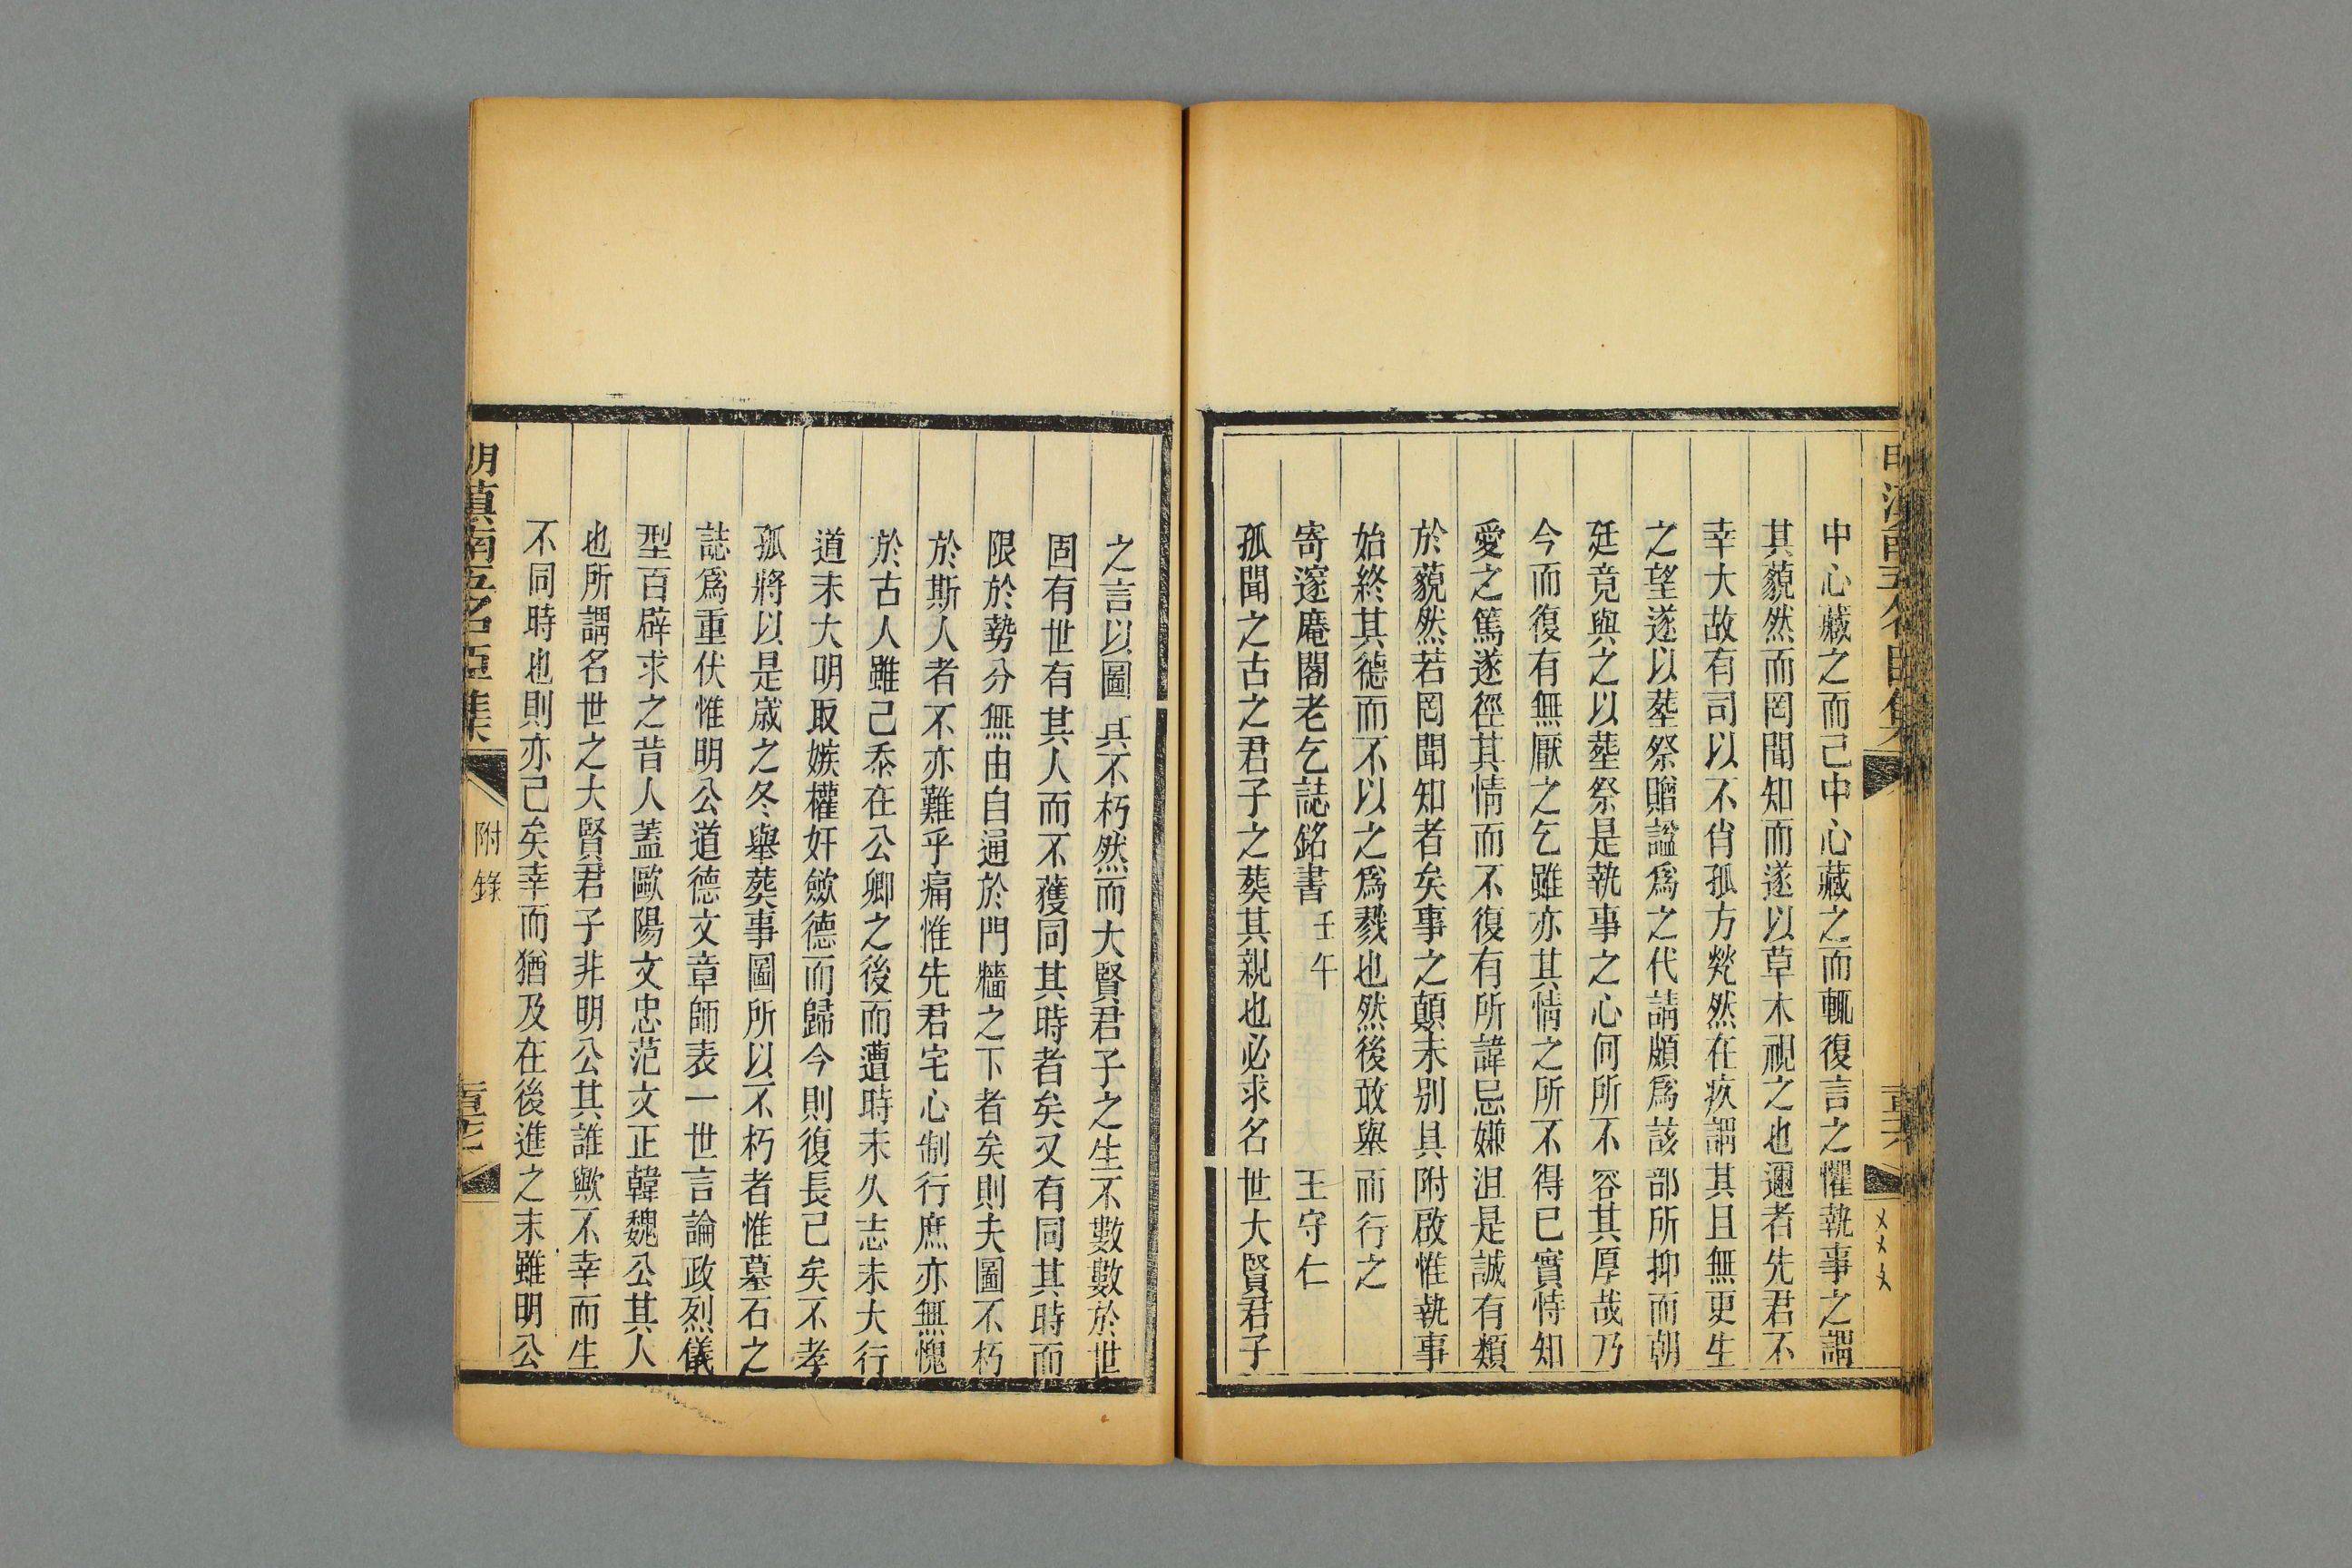 中心藏之而己中心藏之而輒復言之懼執事之謂
其藐然而罔聞知而遂以草木視之也邇者先君不
幸大故有司以不肖孤方煢然在疚謂其且無更生
之望遂以塟祭贈諡爲之代請頗爲該部所抑而朝
廷竟與之以塟祭是執事之心何所不容其厚哉乃
今而復有無厭之乞雖亦其情之所不得已實恃知
愛之篤遂徑其情而不復有所諱忌嫌沮是誠有類
於藐然若罔聞知者矣事之顛末别具附啟惟執事
始終其德而不以之爲戮也然後敢舉而行之
寄邃庵閣老乞誌銘書 壬午 王守仁
孤聞之古之君子之葬其親也必求名世大賢君子
之言以圖其不朽然而大賢君子之生不數數於世
固有世有其人而不獲同其時者矣又有同其時而
限於勢分無由自通於門牆之下者矣則夫圖不朽
於斯人者不亦難乎痛惟先君宅心制行庶亦無愧
於古人雖己忝在公卿之後而遭時未久志未大行
道未大明取嫉權奸斂德而歸今則復長已矣不孝
孤將以是歲之冬舉葬事圖所以不朽者惟墓石之
誌爲重伏惟明公道德文章師表一世言論政烈儀
型百辟求之昔人蓋歐陽文忠范文正韓魏公其人
也所謂名世之大賢君子非明公其誰歟不幸而生
不同時也則亦已矣幸而猶及在後進之末雖明公
明滇南五名臣集
附錄